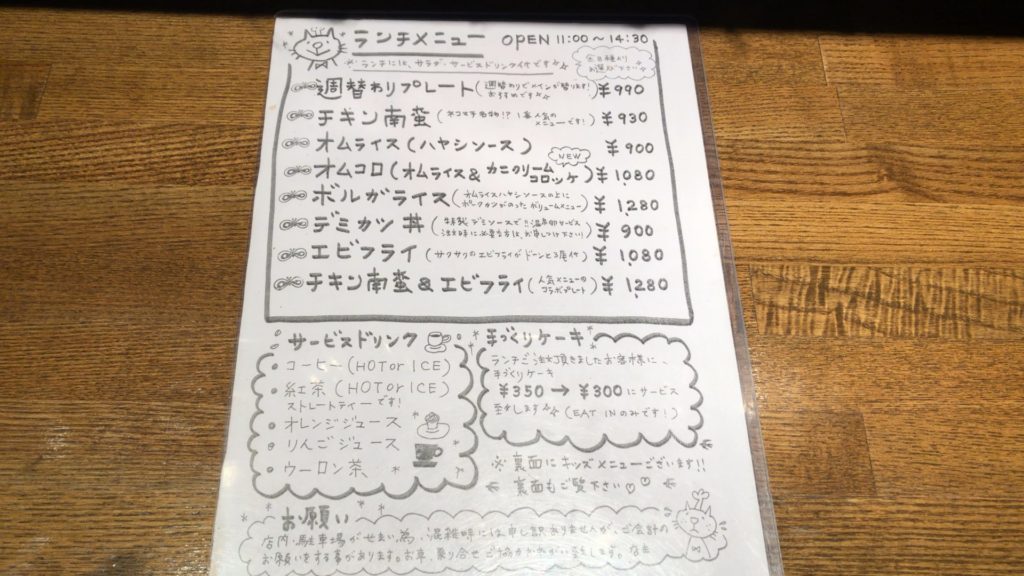 ランチメニュー OPEN 11:00〜14:30
ランチには、サラダ・サービスドリンク付です
全8種より
お選び下さい
週替わりプレート(週替わりでメインが替ります! おすすめです) ¥990
チキン南蛮(ネコマチ名物!? 1番人気のメニューです!) ¥930
オムライス(ハヤシソース) ¥900
NEW
オムコロ(オムライス&カニクリームコロッケ) ¥1,080
ボルガライス(オムライスハヤシソースの上にポークカツがのったボリュームメニュー) ¥1,280
デミカツ丼(特製デミソースで!!温泉卵サービス 注文時に必要な方は、お申しつけ下さい) ¥900
エビフライ(サクサクのエビフライがドーンと3尾付) ¥1,080
チキン南蛮&エビフライ(人気メニューのコラボプレート) ¥1,280
サービスドリンク
・コーヒー(HOT or ICE)
・紅茶(HOT or ICE)
ストレートティーです!
・オレンジジュース
・りんごジュース
・ウーロン茶
手づくりケーキ
ランチご注文頂きましたお客様に、
手づくりケーキ
¥350→¥300にサービス
致します(EAT INのみです!)
※裏面にキッズメニューございます!!
裏面もご覧下さい♡♡
お願い
店内・駐車場がせまい為、混雑時には申し訳ありませんが、ご会計の
お願いをする事があります。お車、乗り合せご協力お願い致します。店主